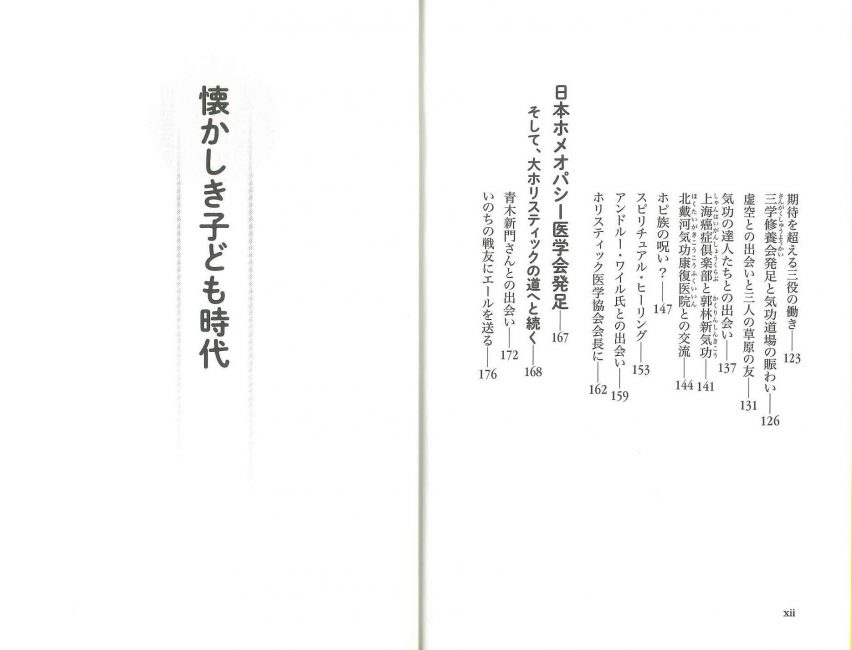 期待を超える三役の働き——123
三学修養会発足と気功道場の賑わい——126
さんがくしゅうようかい
虚空との出会いと三人の草原の友——131
気功の達人たちとの出会い——137
上海癌症倶楽部と郭林新気功——141
しゃんはいがんしょうくらぶ　かくりんしんきこう
北戴河気功康復医院との交流——144
ほくたいがきこうこうふくいいん
ホピ族の呪い？——147
スピリチュアル・ヒーリング——153
アンドルー・ワイル氏との出会い——159
ホリスティック医学協会会長に——162
日本ホメオパシー医学会発足——167
そして、大ホリスティックの道へと続く——168
青木新門さんとの出会い——172
いのちの戦友にエールを送る——176
xii
懐かしき子ども時代